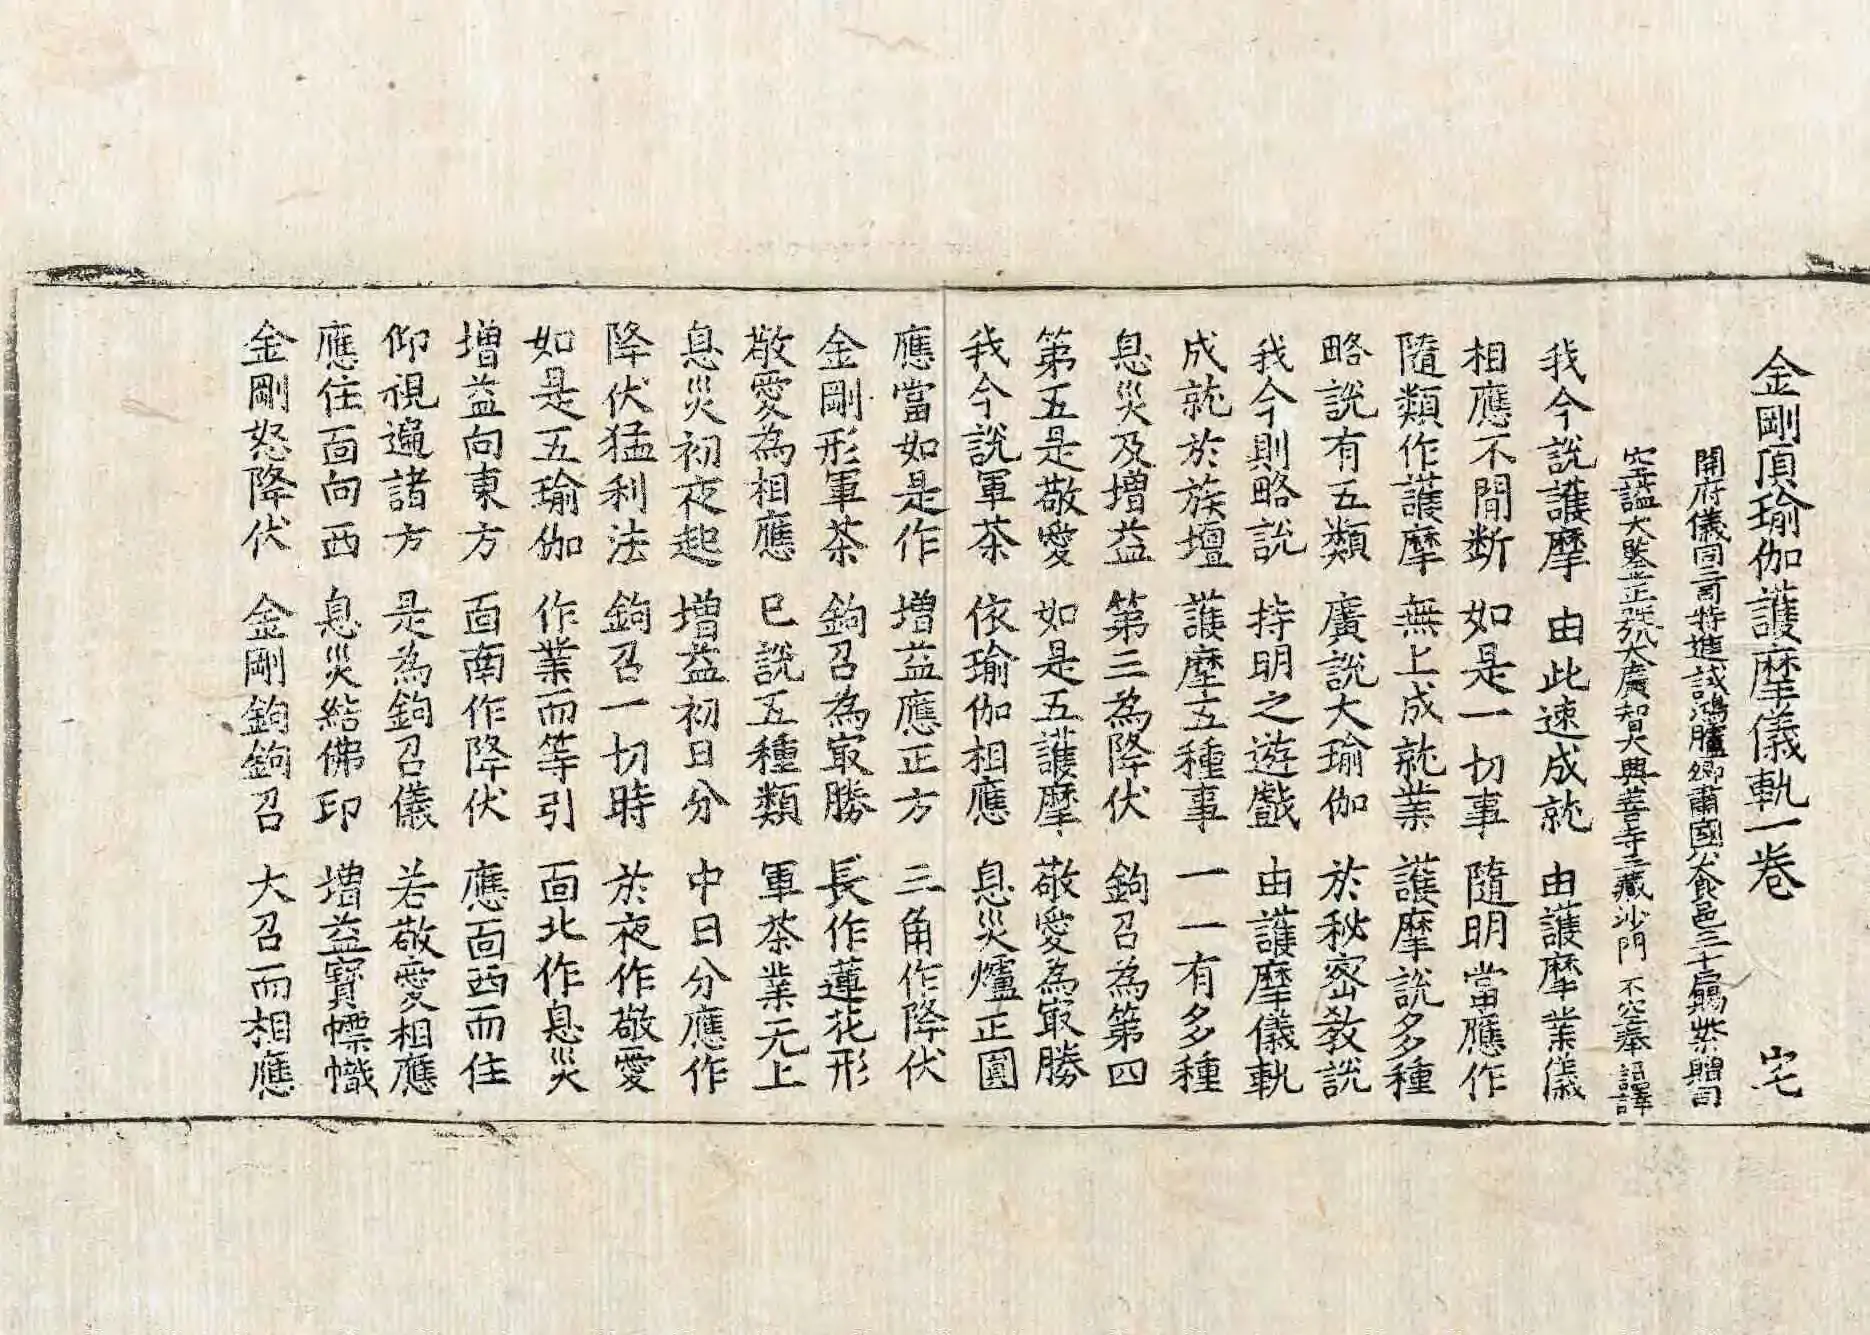 金剛頂瑜伽護摩儀軌一卷 宅
開府儀同三司特進試鴻臚卿肅國公食邑三千戶賜紫贈司
空謚大鑒正號大廣智大興善寺三藏沙門 不空奉 詔譯
我今說護摩 由此速成就 由護摩業儀
相應不間断 如是一切事 隨明當應作
隨類作護摩 無上成就業 護摩說多種
略說有五類 廣說大瑜伽 於秘密教說
我今則略說 持明之遊戲 由護摩儀軌
成就於族壇 護摩五種事 一一有多種
息災及增益 第三為降伏 鉤召為第四
第五是敬愛 如是五護摩 敬愛為㝡勝
我今說軍荼 依瑜伽相應 息災爐正圓
應當如是作 增益應正方 三角作降伏
金剛形軍荼 鉤召為㝡勝 長作蓮花形
敬愛為相應 已說五種類 軍荼業无上
息災初夜起 增益初日分 中日分應作
降伏猛利法 鉤召一切時 於夜作敬愛
如是五瑜伽 作業而等引 面北作息災
增益向東方 面南作降伏 應面西而住
仰視遍諸方 是為鉤召儀 若敬愛相應
應住面向西 息災結佛印 增益寶幖幟
金剛怒降伏 金剛鉤鉤召 大召而相應